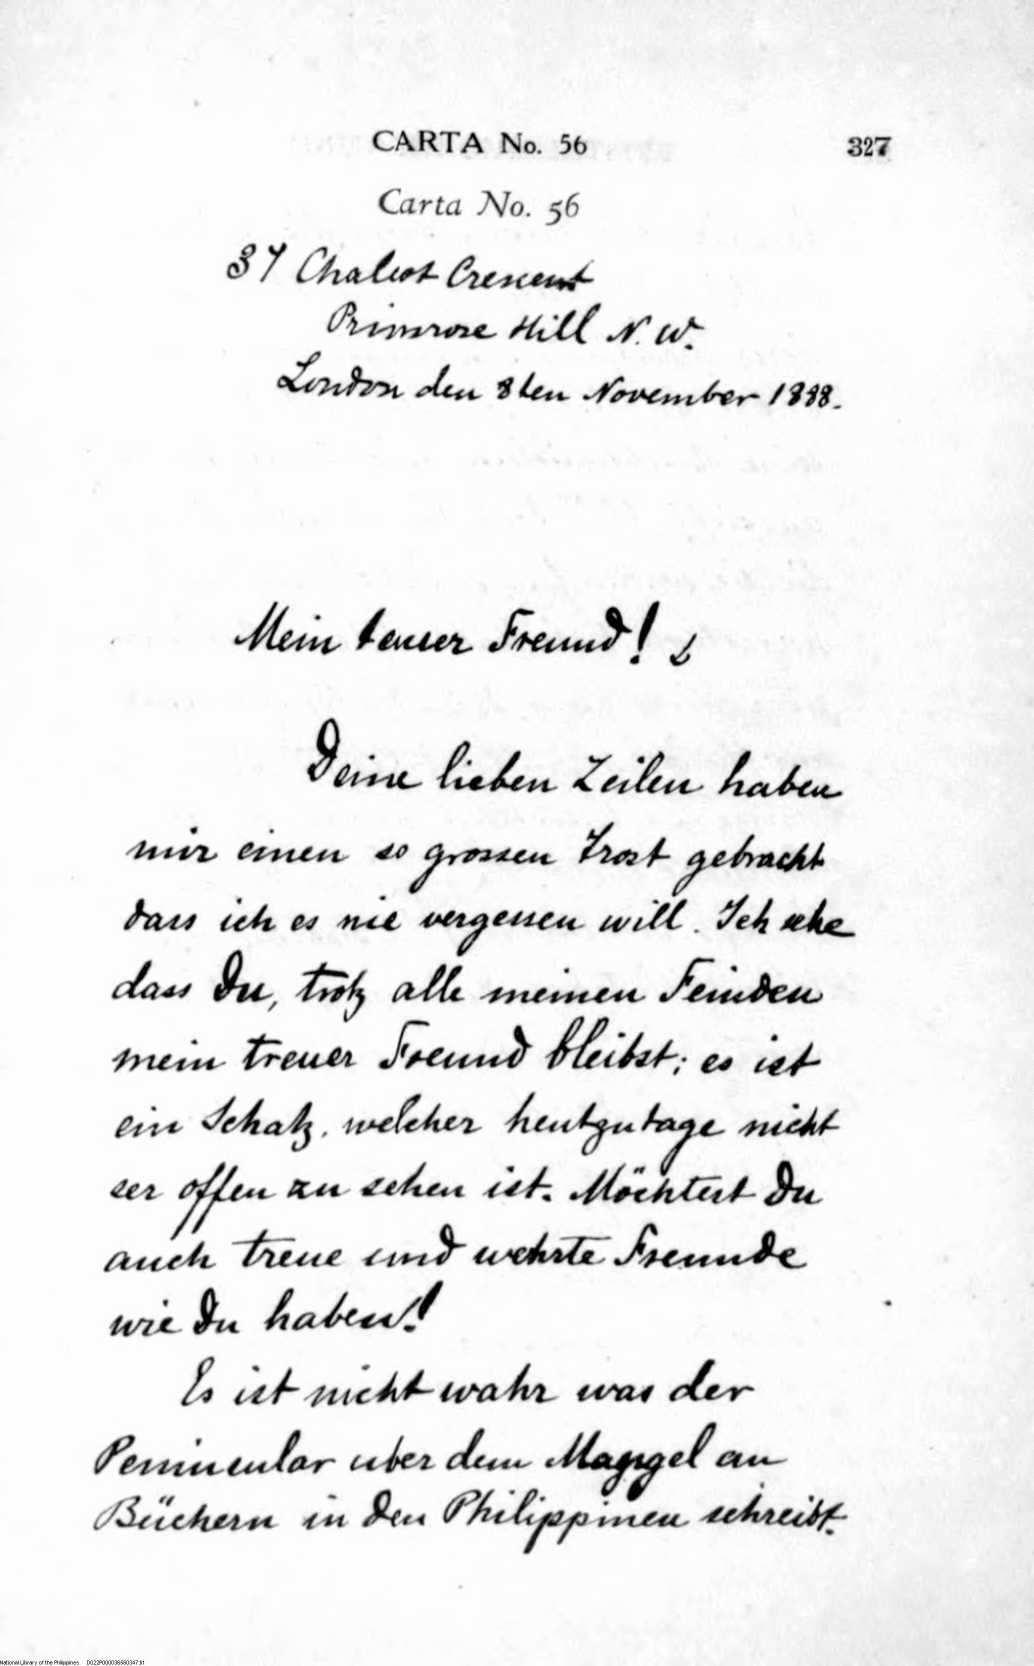 CARTA No. 56 327
Carta No. 56
37 Chalcot Crescent
Primrose Hill N. W.
London den 8ten November 1888.
Mein teuer Freund!
Deine lieben Zeilen haben
mir einen so grossen Trost gebracht
dass ich es nie vergessen will. Ich sehe
dass Du, trotz alle meinen Feinden
mein treuer Freund bleibst; es ist
ein Schatz, welcher heutzutage nicht
ser offen zu sehen ist. Möchtest Du
auch treue und wehrte Freunde
wie Du haben!
Es ist nicht wahr was der
Peninsular uber dem Mangel an
Büchern in den Philippinen schreibt.
National Library of the Philippines